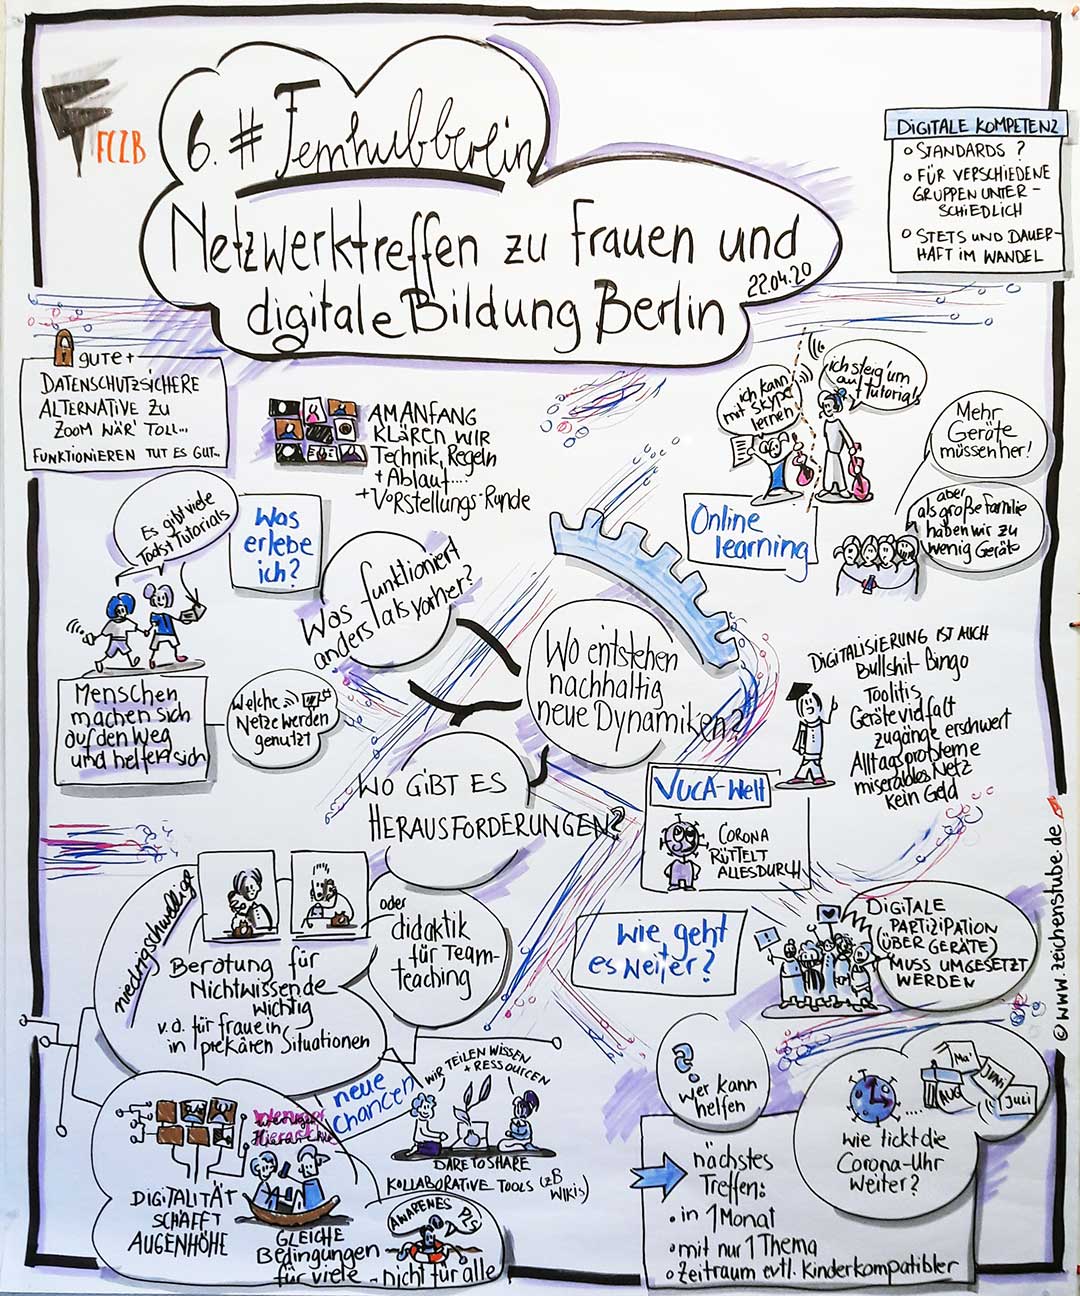 FCZB
6. # Femhubberlin
Netzwerktreffen zu Frauen und
digitale Bildung Berlin
22.04.20
DIGITALE KOMPETENZ
o STANDARDS ?
o FÜR VERSCHIEDENE
GRUPPEN UNTER-
SCHIEDLICH
o STETS UND DAUER-
HAFT IM WANDEL
gute +
DATENSCHUTZSICHERE
ALTERNATIVE ZU
ZOOM WÄR' TOLL...
FUNKTIONIEREN TUT ES GUT...
AM ANFANG
KLÄREN WIR
Technik, Regeln
+ Ablauf....
+ Vorstellungs-Runde
ich kann
mit Skype
lernen
ich steig' um
auf Tutorials
Online
learning
Mehr
Geräte
müssen her!
aber
als große Familie
haben wir zu
wenig Geräte
Es gibt viele
Tutorials
Was
erlebe
ich?
Was funktioniert
anders als vorher?
Wo entstehen
nachhaltig
neue Dynamiken?
WO GIBT ES
HERAUSFORDERUNGEN?
Menschen
machen sich
auf den Weg
und helfen sich
Welche
Netze werden
genutzt
DIGITALISIERUNG IST AUCH
Bullshit-Bingo
Toolitis
Gerätevielfalt
zugänge erschwert
Alltagsprobleme
miserables Netz
kein Geld
VUCA-Welt
CORONA
RÜTTELT
ALLES DURCH
Wie geht
es weiter?
DIGITALE
PARTIZIPATION
(ÜBER GERÄTE)
MUSS UMGESETZT
WERDEN
niedrigschwellige
Beratung für
Nichtwissende
wichtig
v.a. für frauen in
in prekären Situationen
oder
didaktik
für Team-
teaching
neue
Chancen
WIR TEILEN WISSEN
+ RESSOURCEN
DARE TO SHARE
KOLLABORATIVE TOOLS (zB
WIKIS)
weniger
Hierarchie
DIGITALITÄT
SCHAFFT
AUGENHÖHE
GLEICHE
Bedingungen
für viele - nicht für alle
AWARENES PLS
wer kann
helfen
nächstes
Treffen:
• in 1 Monat
• mit nur 1 Thema
o Zeitraum evtl. Kinderkompatibler
Mai
JUNI
Juli
AUG
wie tickt die
Corona-Uhr
weiter?
© www.zeichenstube.de